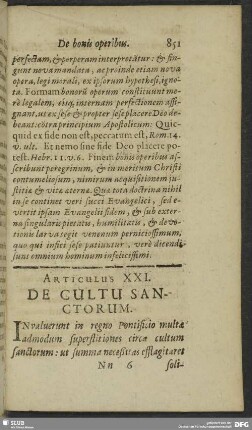 De bonis operibus. 851
perfectam, & perperam interpretãtur: & fin-
gunt nova mandata, ac proinde etiam nova
opera, legi morali, ex ipsorum hypothesi, igno-
ta. Formam bonorũ operum constituunt me-
rè legalem, eiq; internam perfectionem assi-
gnant, ut ex sese & propter sese placere Deo de-
beant, contra principium Apostolicum: Quic-
quid ex fide non est, peccatum est, Rom. 14.
v. ult. Et nemo sine fide Deo placere po-
test. Hebr. 11. v. 6. Finem bonis operibus as-
scribunt peregrinum, & in meritum Christi
contumeliosum, nimirum acquisitionem ju-
stitiæ & vitæ æternæ. Quæ tota doctrina nihil
in se continet veri succi Evangelici, sed e-
vertit ipsam Evangelii fidem, & sub exter-
na singularis pietatis, humilitatis, & devo-
tionis larva tegit venenum perniciosissimum,
quo qui infici sese patiuntur, verè dicendi
sunt omnium hominum infelicissimi.
ARTICULUS XXI.
DE CULTU SAN-
CTORUM.
INvaluerunt in regno Pontificio multæ
admodum superstitiones circa cultum
sanctorum: ut summa necessitas efflagitaret
Nn 6 soli-
SLUB
DFG